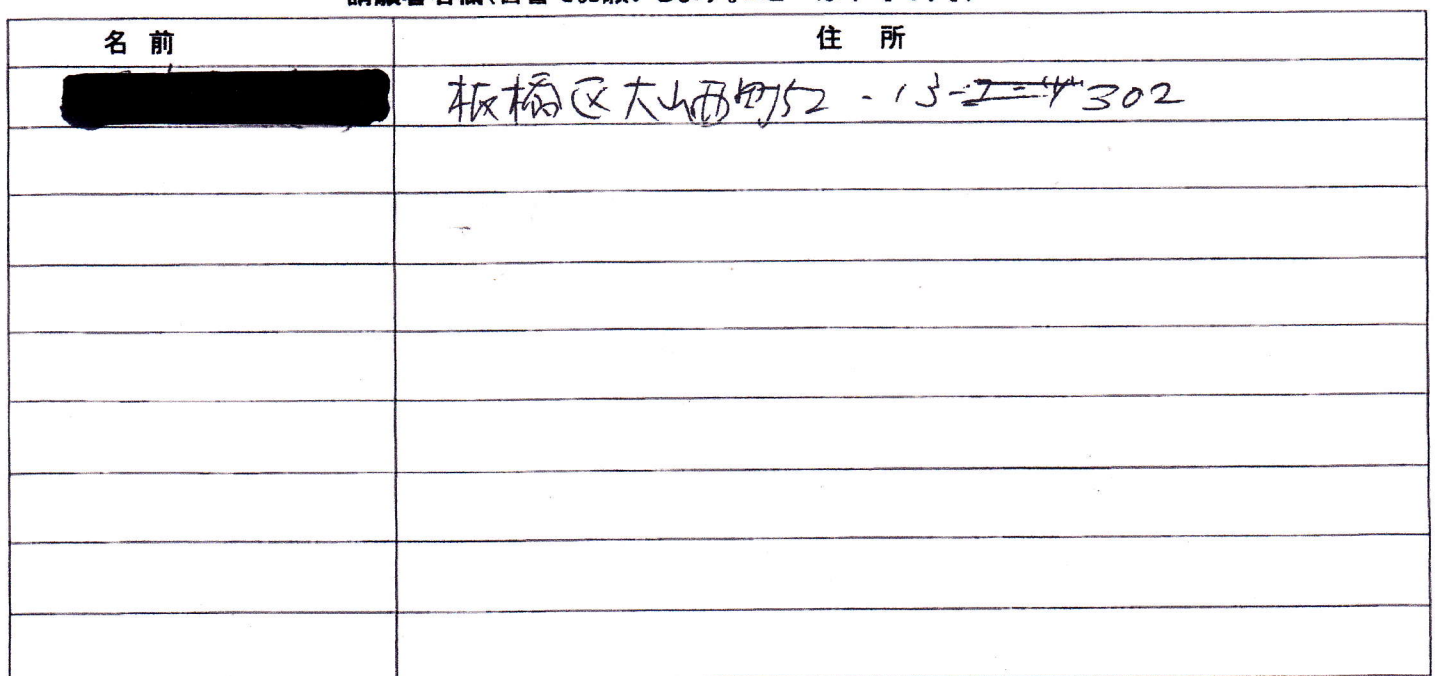 名前 住所
板橋区大山西町52-13-302